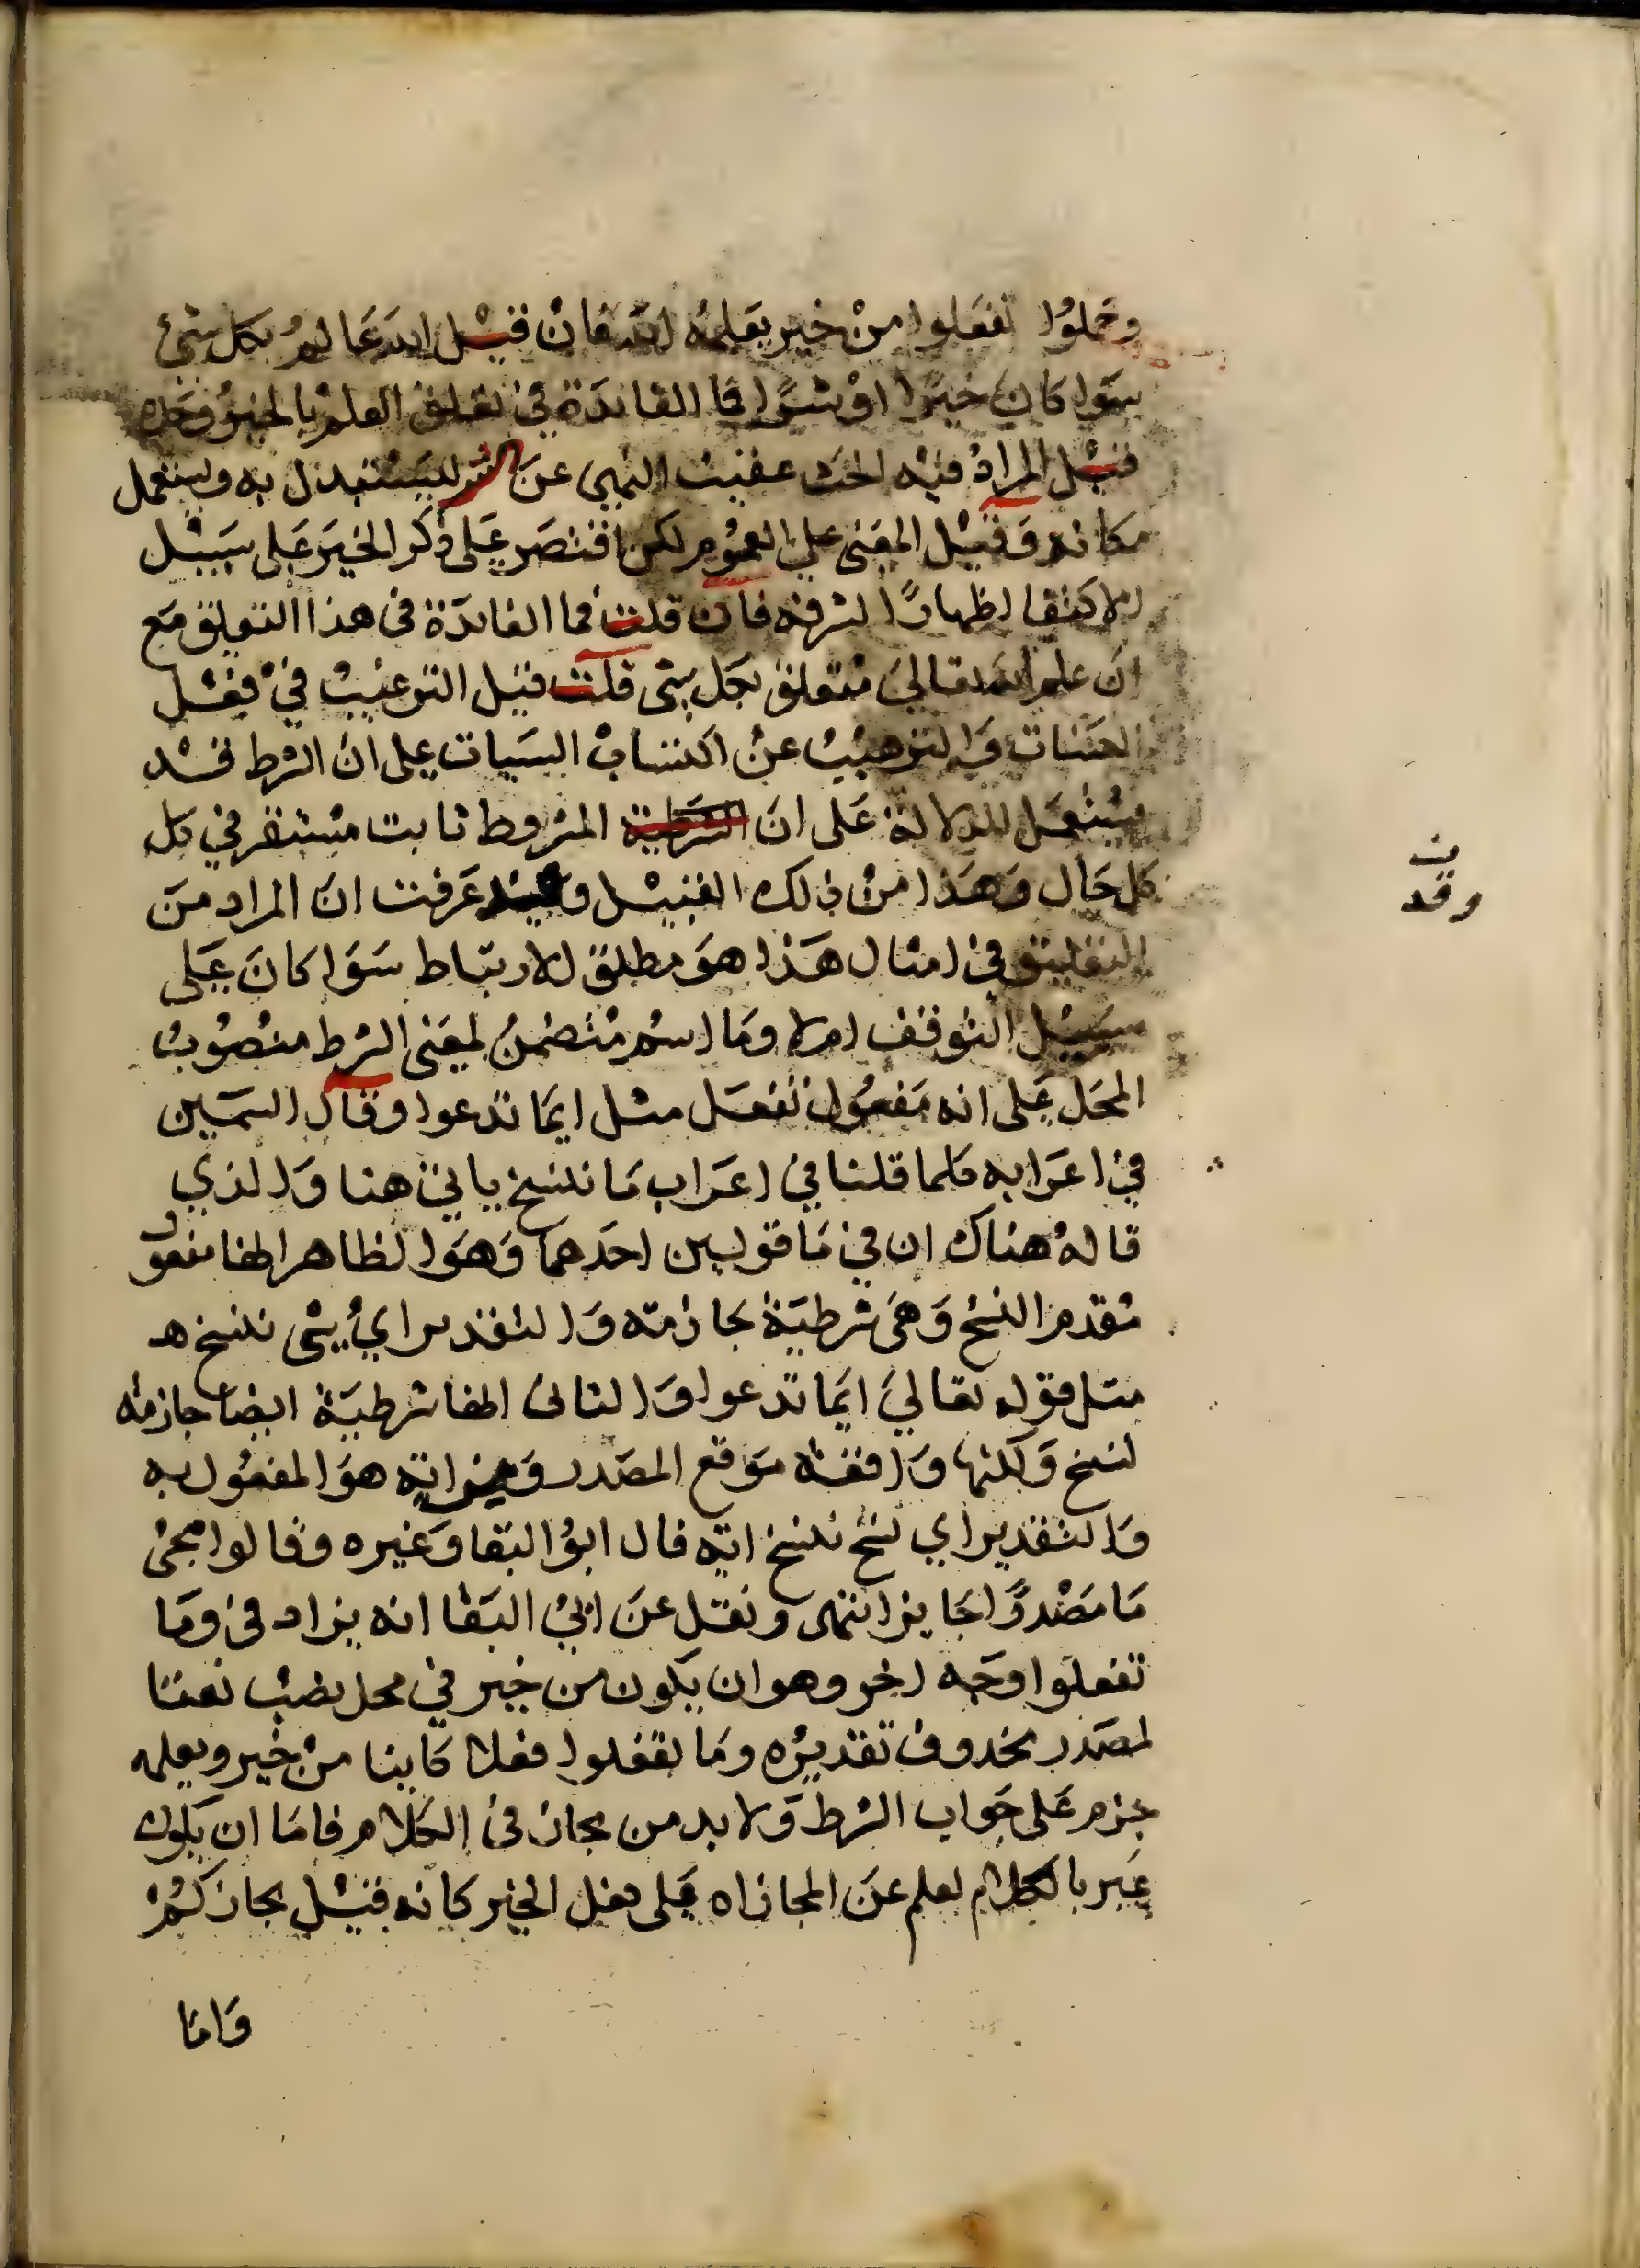 وحملوا تفعلوا من خير يعلمه الله فان قيل الله عالم بكل شئ
سوا كان خيرا او شرا فما الفائدة في تعلق العلم بالخير وحده
قيل المراد فيه الحث عقيب النهي عن الشر ليستبدل به ويستعمل
مكانه وقيل المعنى على العموم لكن اقتصر على ذكر الخير على سبيل
الاكتفا اظهارًا لشرفه فان قلت فما الفائدة فى هذا التعليق مع
ان علم الله تعالى متعلق بكل شى قلت قيل الترغيب في فعل
الحسنات والترهيب عن اكتساب السيات على ان الشرط قد
يستعمل للدلالة على ان الشرطية المشروط ثابت مستقر في كل
كل حال وهذا من ذلك القبيل وقد عرفت ان المراد من
التعليق في امثال هذا هو مطلق الارتباط سوا كان على
سبيل التوقف ام لا وما اسم متضمن لمعنى الشرط منصوب
المحل على انه مفعول تفعل مثل ايما تدعوا وقال السمين
في اعرابه كلما قلنا في اعراب ما ننسخ ياتي هنا والذي
قاله هناك ان في ما قولين احدهما وهو الظاهر انها مفعول
مقدم النسخ وهى شرطية جازمة والتقدير اي شى ننسخ هـ
مثل قوله تعالى ايما تدعوا والثانى انها شرطية ايضا جازمة
لنسخ ولكنها واقعة موقع المصدر ومن اية هو المفعول به
والتقدير اي نسخ ننسخ اية قال ابو البقا وغيره وقالوا مجئ
ما مصدرًا جايز انتهى ونقل عن ابي البقا انه يزاد فى وما
تفعلوا وجه اخر وهو ان يكون من خير في محل نصب نعتا
لمصدر محذوف تقديره وما تفعلوا فعلا كاينا من خير ويعلمه
جزم على جواب الشرط ولا بد من مجاز فى الكلام فاما ان يكون
عبر بالكلام لعلم عن المجازاه على فعل الخير كانه قيل يجازكم
واما
ن
وقد